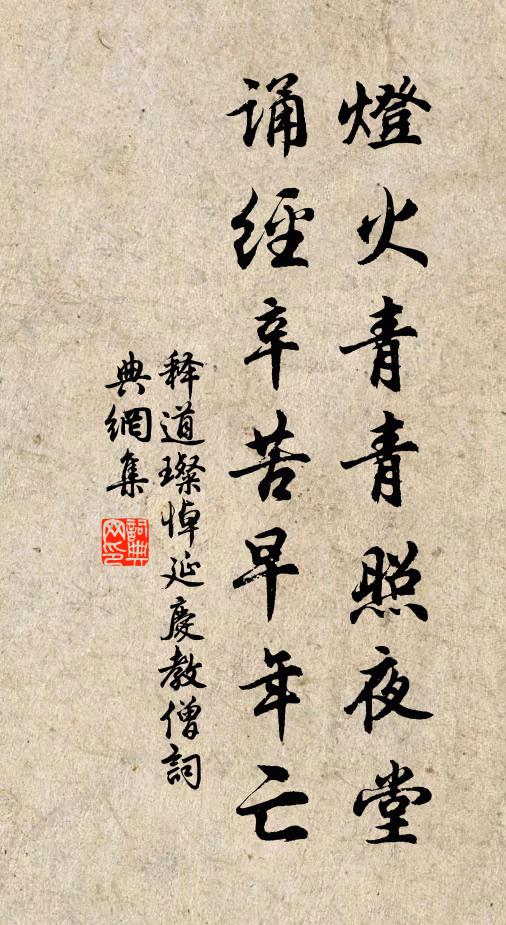 燈火青青照夜堂
诵經辛苦早年亡
释道璨悼延慶教僧詞
典網集
詞典網印